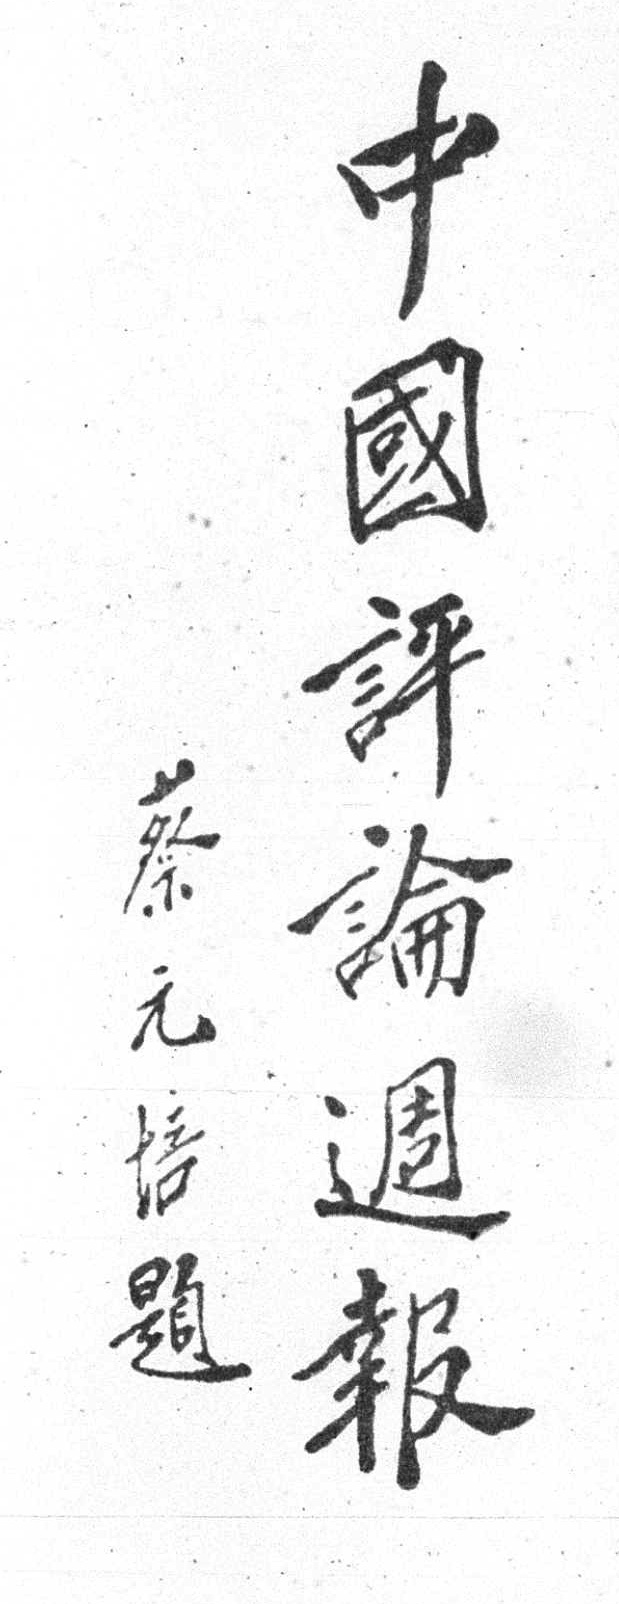 中國評論週報
蔡元培題